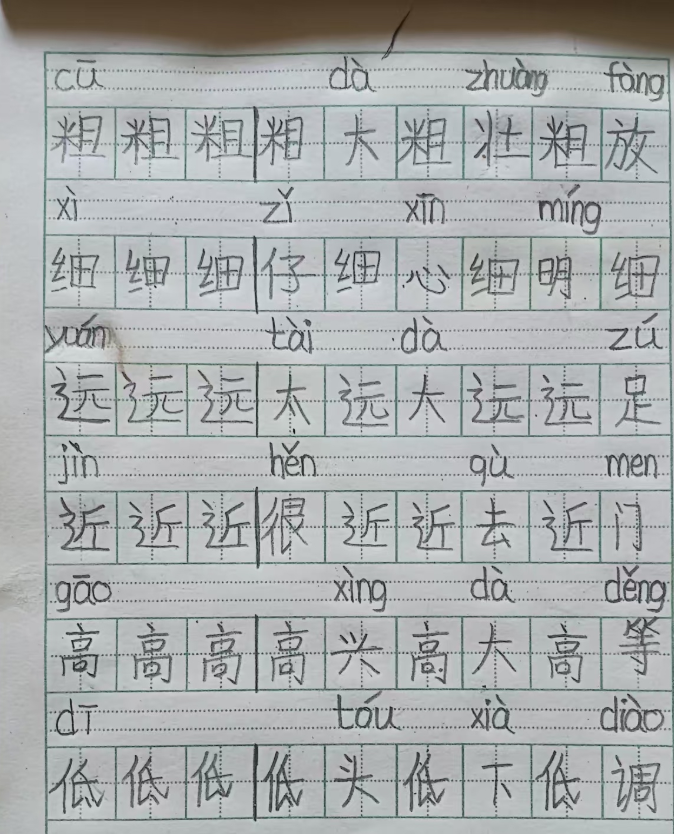 cū dà zhuàng fàng
粗粗粗粗大粗壮粗放
xì zǐ xīn míng
细细细仔细心细明细
yuǎn tài dà zú
远远远太远大远远足
jìn hěn qù men
近近近很近近去近门
gāo xìng dà děng
高高高高兴高大高等
dī tóu xià diào
低低低低头低下低调